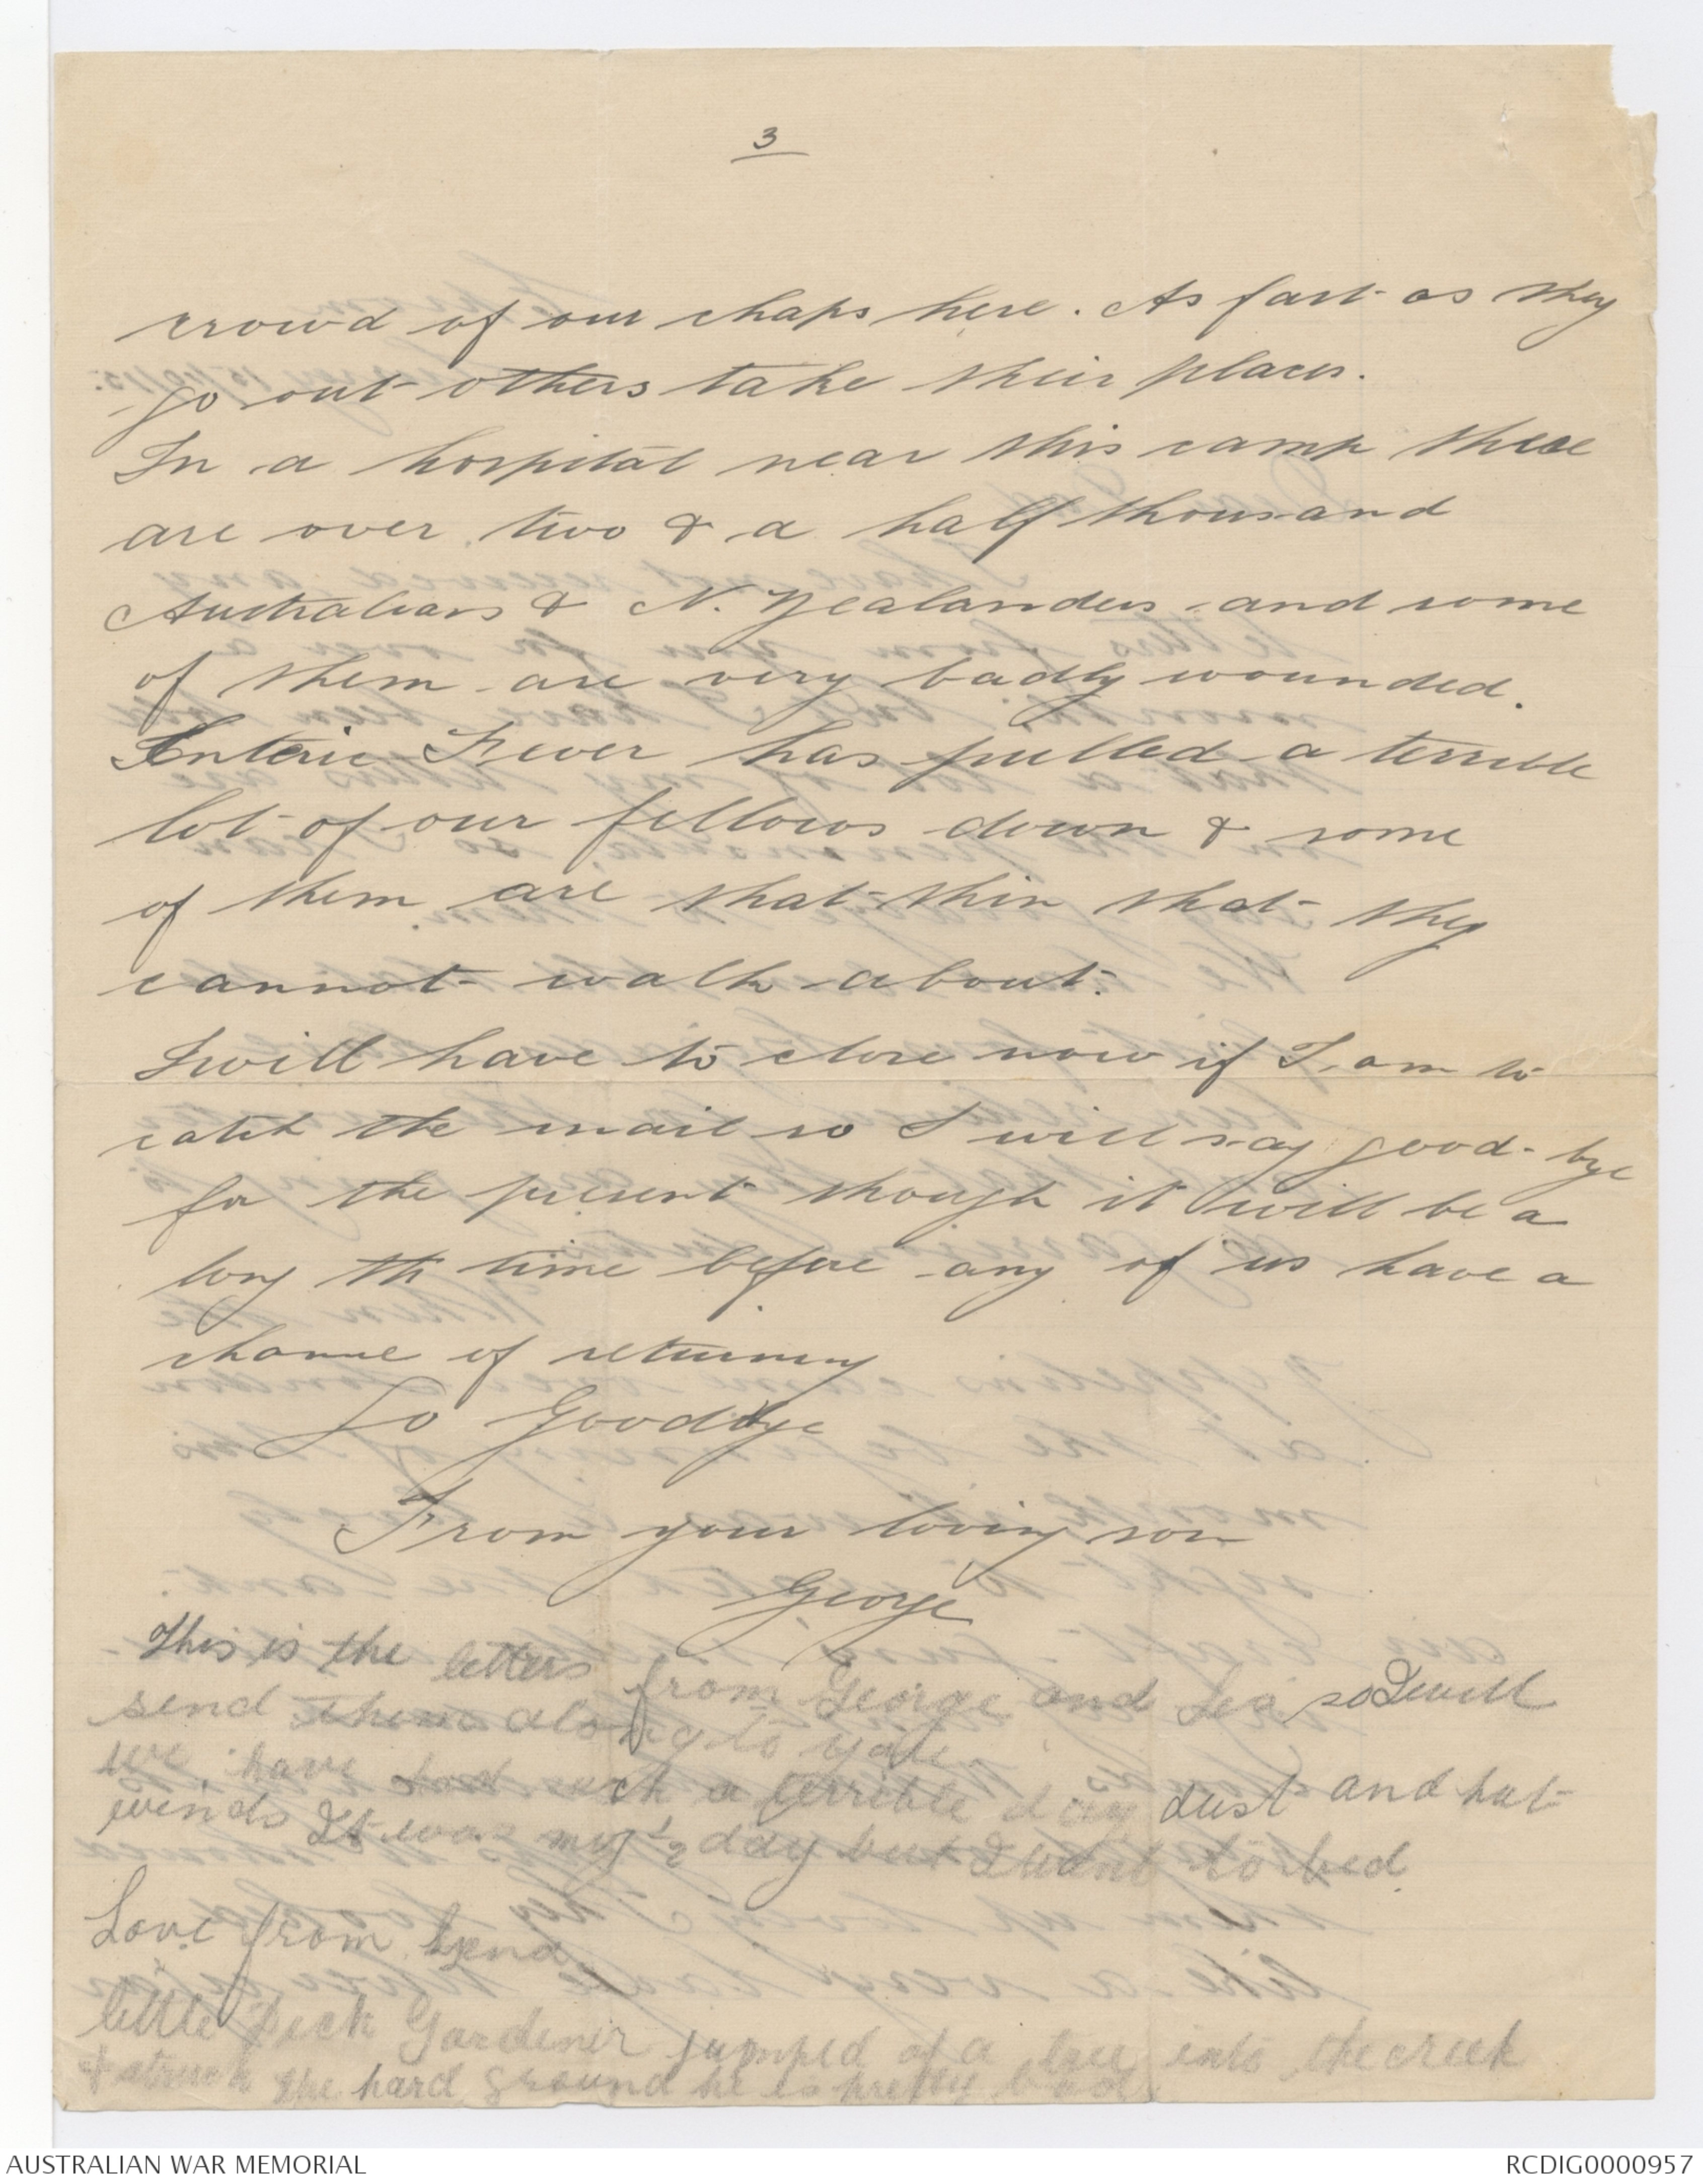 3
crowd of our chaps here. As fast as they
go out others take their places.
In a hospital near this camp there
are over two & a half thousand
Australians & N. Zealanders and some
of them are very badly wounded.
Enteric Fever has pulled a terrible
lot of our fellows down & some
of them are that thin that they
cannot walk about.
I will have to close now if I am to
catch the mail so I will say good-bye
for the present though it will be a
long th time before any of us have a
chance of returning
So Goodbye
From your loving son
George
This is the letters from George and Les so I will
send them along to you.
we have had such a terrible day dust and hot
winds It was my ½ day but I went to bed
Love from
little Dick Gardener jumped of a tree into the creek
& struck the hard ground he is pretty bad
AUSTRALIAN WAR MEMORIAL
RCDIG0000957